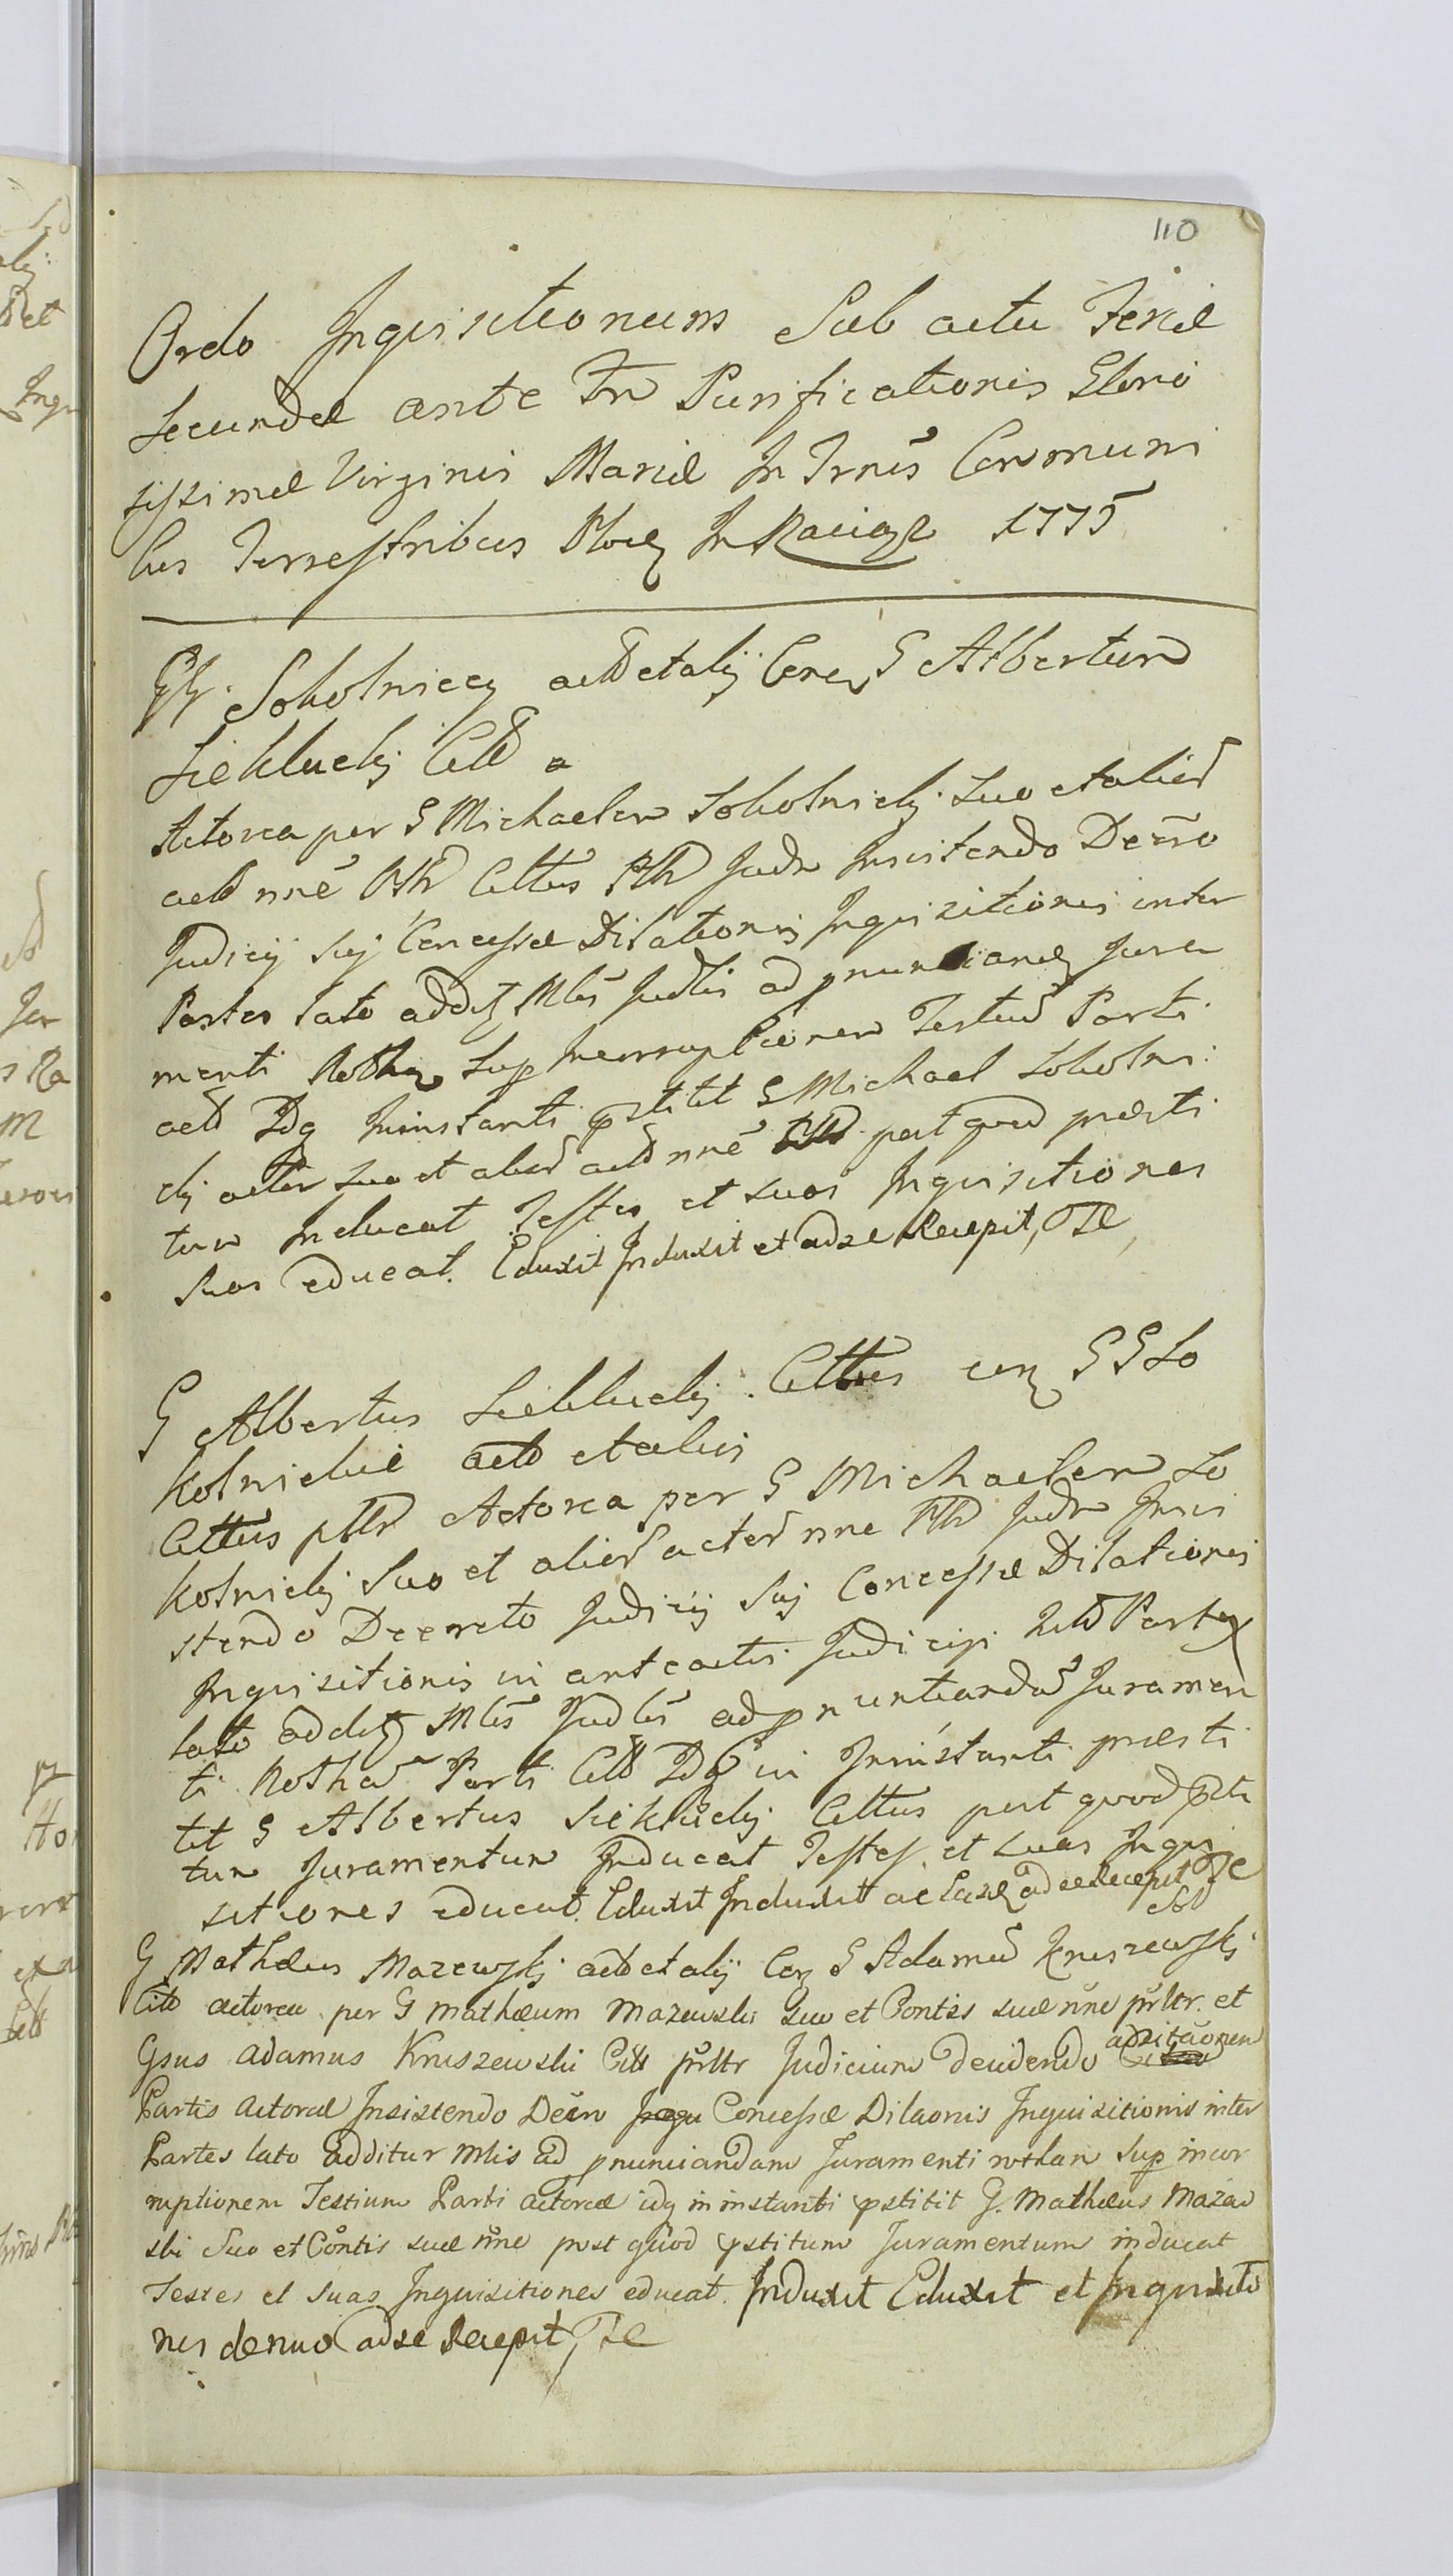 110
Ordo Inquisitionum Sub actu Feriæ
secundæ ante Fm Purificationis Glorio
sissimæ Virginis Mariæ In Trnis Communi
bus Terrestribus Plocg In Raciąz 1775
GG. Sokolniccy actt et alij Con G Albertum
Siekluckij Citt
Actorea per G Michaelem Sokolnickij suo et aliorū
actt nne Ptt Cittus Ptt Judm Insistendo Decro
Judicij sij Concessæ Dilationis Inquisitionis inter
Partes lato additg Mlis Judlis ad pnunciandg Jura
menti Rotham Sup Incorruptionem Testiū Parti
actt Idq Ininstanti pstitit G Michael Sokolni
ckij actor suo et aliorū actt nne post quod præsti
tum Inducat Testes et suas Inquisitiones
suas educat. Eduxit Induxit et ad se Recepit, TE
G Albertus Siekluckij Cittus con G G So
kolnickie actt et alios
Cittus pttr Actorea per G Michaelem So
kolnickij Suo et aliorū actorū nne Ptt Judm Insi
stendo Decreto Judicij Sij Concessæ Dilationis
Inquisitionis in anteactis Judicijs Partes
lato additg Mlis Judlis ad pnuntiandā Juramen
ti Rothā Parti Citt Idq in Ininstanti præsti
tit G Albertus Siekluckij Cittus post quod pstti
tum Juramentum Inducat Testes et suas Inqui
sitiones educat. Eduxit Induxit ac ad se Recepit TE
G Mathæus Mazewskj actt et alij Con G Adamū Kruszewskj
Citt actorea per G Mathæum Mazewski suo et Contis suæ nne prttr. et
Gsus Adamus Kruszewski Citt prttr Judicium decidendo adcitaonem
Partis actoreæ Insistendo Decro Concessæ Dilaonis Inquisitionis inter
Partes lato additur Mlis ad pnunciandam Juramenti rotham sup incor
ruptionem Testium Parti actoreæ idq in instanti pstitit G. Mathæus Maze
ski suo et Contis suæ nne post quod pstitum Juramentum inducat
Testes et suas Inquisitiones educat. Induxit Eduxit et Inquisitio
nes denuo ad se Recepit, TE